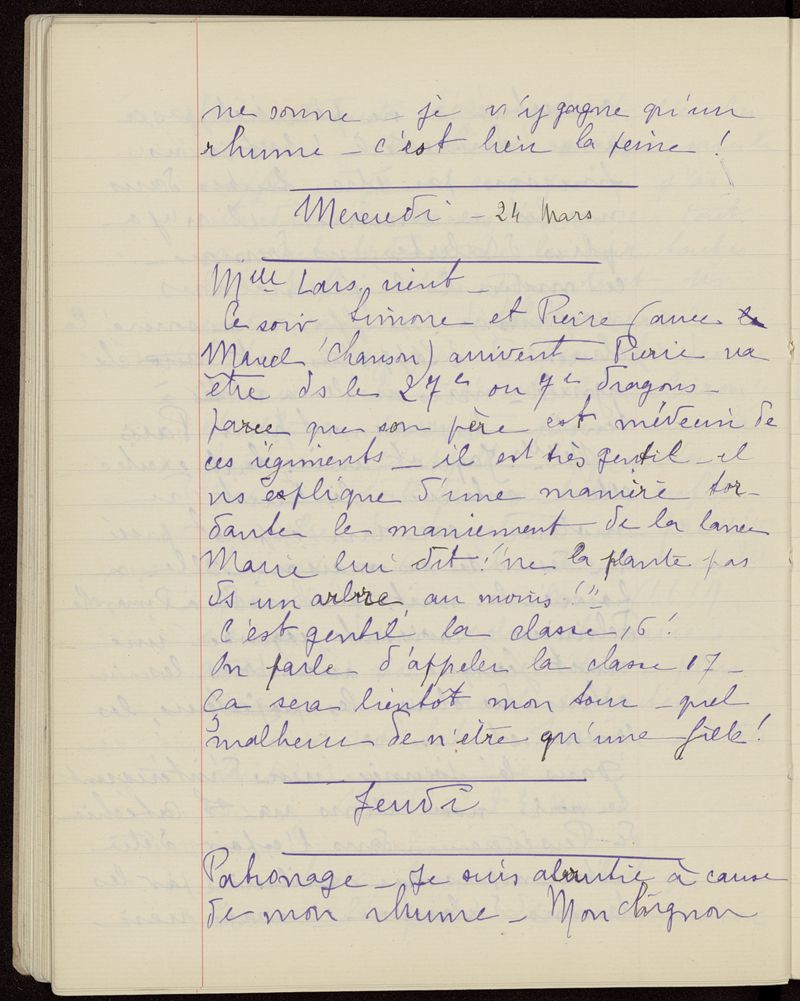 ne sonne – je n'y gagne qu'un
rhume – c'est bien la peine !
Mercredi – 24 Mars
Melle Lars. vient –
Ce soir Simone et Pierre (avec
Marcel Chanson) arrivent – Pierre va
être ds le 27e ou 7e dragons –
parce que son père est médecin de
ces régiments – il est très gentil – il
ns explique d'une manière tor-
dante le maniement de la lance
Marie lui dit : "ne la plante pas
ds un arbre, au moins !"
C'est gentil, la classe 16 !
On parle d'appeler la classe 17 –
Ça sera bientôt mon tour – quel
malheur de n'être qu'une fille !
Jeudi
Patronage – Je suis abrutie à cause
de mon rhume – Mon chignon